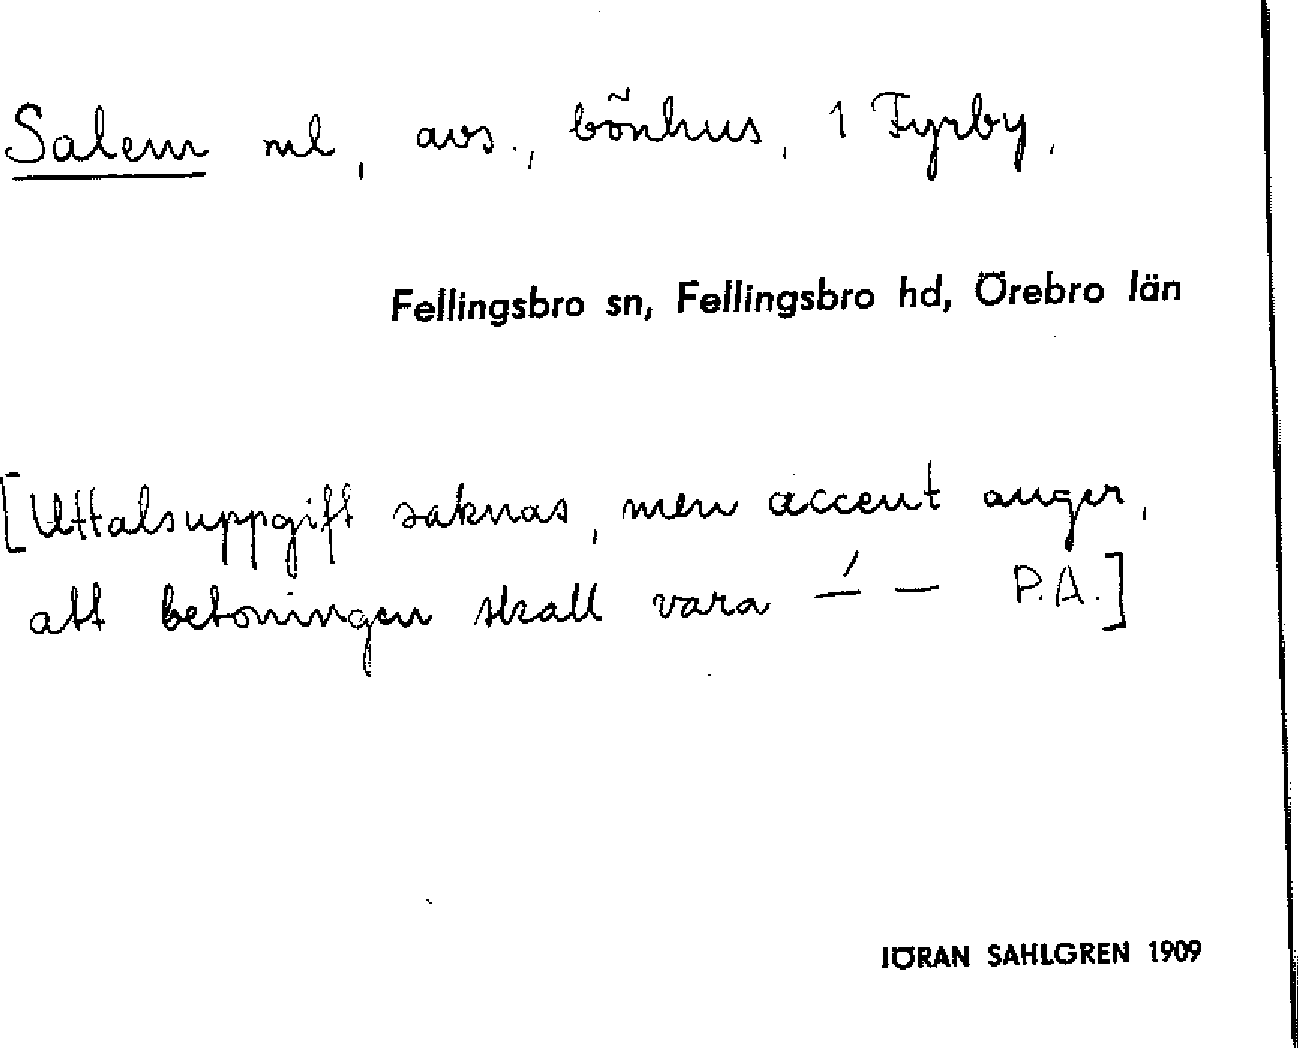 Salem ml, avs., bönhus, 1 Fyrby.
Fellingsbro sn, Fellingsbro hd, Örebro län
[Uttalsuppgift saknas, men accent anger,
att betoningen skall vara –́ – P.A.]
JÖRAN SAHLGREN 1909